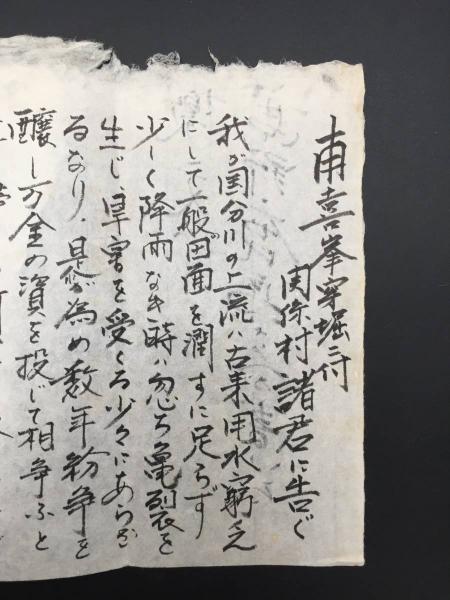 甫喜峯穿堀ニ付
関係村諸君に告ぐ
我が国分川の上流ハ古来用水窮乏
にして一般田面を潤すに足らず
少しく降雨なき時ハ忽ち亀裂を
生じ、旱害を受くる少々にあらざ
るなり、是が為め数年紛争を
醸し万金の資を投じて相争ふと